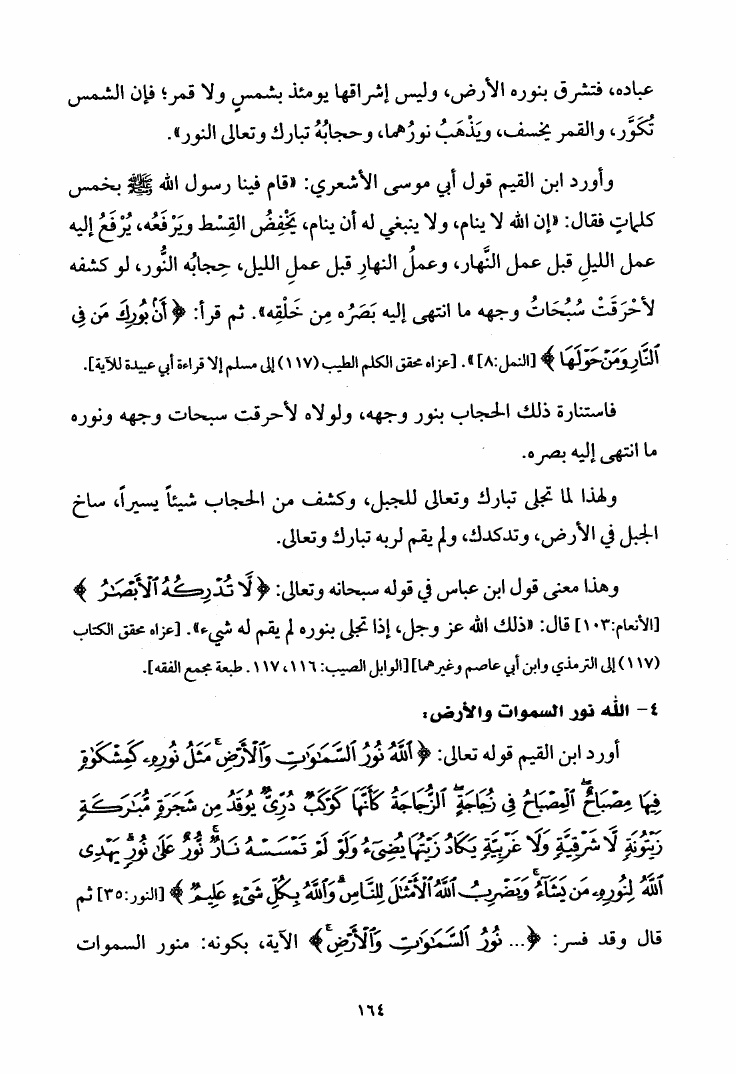 عباده، فتشرق بنوره الأرض، وليس إشراقها يومئذ بشمسٍ ولا قمر؛ فإن الشمس
تُكوَّر، والقمر يخسف، ويَذْهَبُ نورُهما، وحجابُهُ تبارك وتعالى النور».
وأورد ابن القيم قول أبي موسى الأشعري: «قام فينا رسول الله ﷺ بخمس
كلماتٍ فقال: «إن الله لا ينام، ولا ينبغي له أن ينام، يَخْفِضُ القِسْط ويَرْفَعُه، يُرْفَعُ إليه
عمل الليلِ قبل عمل النَّهار، وعملُ النهارِ قبل عملِ الليل، حِجابُه النُّور، لو كشفه
لأحْرَقَتْ سُبُحَاتُ وجهه ما انتهى إليه بَصَرُه مِن خَلْقِه». ثم قرأ: ﴿ أَنۢ بُورِكَ مَن فِى
ٱلنَّارِ وَمَنْ حَوْلَهَا ﴾ [النمل:٨]». [عزاه محقق الكلم الطيب (١١٧) إلى مسلم إلا قراءة أبي عبيدة للآية].
فاستنارة ذلك الحجاب بنور وجهه، ولولاه لأحرقت سبحات وجهه ونوره
ما انتهى إليه بصره.
ولهذا لما تجلى تبارك وتعالى للجبل، وكشف من الحجاب شيئاً يسيراً، ساخ
الجبل في الأرض، وتدكدك، ولم يقم لربه تبارك وتعالى.
وهذا معنى قول ابن عباس في قوله سبحانه وتعالى: ﴿ لَّا تُدْرِكُهُ ٱلْأَبْصَٰرُ ﴾
[الأنعام:١٠٣] قال: «ذلك الله عز وجل، إذا تجلى بنوره لم يقم له شيء». [عزاه محقق الكتاب
(١١٧) إلى الترمذي وابن أبي عاصم وغيرهما] [الوابل الصيب: ١١٦، ١١٧. طبعة مجمع الفقه].
٤- الله نور السموات والأرض:
أورد ابن القيم قوله تعالى: ﴿ ٱللَّهُ نُورُ ٱلسَّمَٰوَٰتِ وَٱلْأَرْضِ ۚ مَثَلُ نُورِهِۦ كَمِشْكَوٰةٍ
فِيهَا مِصْبَاحٌ ۖ ٱلْمِصْبَاحُ فِى زُجَاجَةٍ ۖ ٱلزُّجَاجَةُ كَأَنَّهَا كَوْكَبٌ دُرِّىٌّ يُوقَدُ مِن شَجَرَةٍ مُّبَٰرَكَةٍ
زَيْتُونَةٍ لَّا شَرْقِيَّةٍ وَلَا غَرْبِيَّةٍ يَكَادُ زَيْتُهَا يُضِىٓءُ وَلَوْ لَمْ تَمْسَسْهُ نَارٌ ۚ نُّورٌ عَلَىٰ نُورٍ ۗ يَهْدِى
ٱللَّهُ لِنُورِهِۦ مَن يَشَآءُ ۚ وَيَضْرِبُ ٱللَّهُ ٱلْأَمْثَٰلَ لِلنَّاسِ ۗ وَٱللَّهُ بِكُلِّ شَىْءٍ عَلِيمٌ ﴾ [النور:٣٥] ثم
قال وقد فسر: ﴿... نُورُ ٱلسَّمَٰوَٰتِ وَٱلْأَرْضِ ۚ﴾ الآية، بكونه: منور السموات
١٦٤